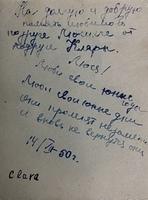 На долгую и добрую
память любимой
подруге Люсиле от
подруги Клары.
Люся!
Люби свои юные года
Люби свои юные дни
Они пролетят незаметно
и вновь не вернутся они
14/IX-60г.
Clara